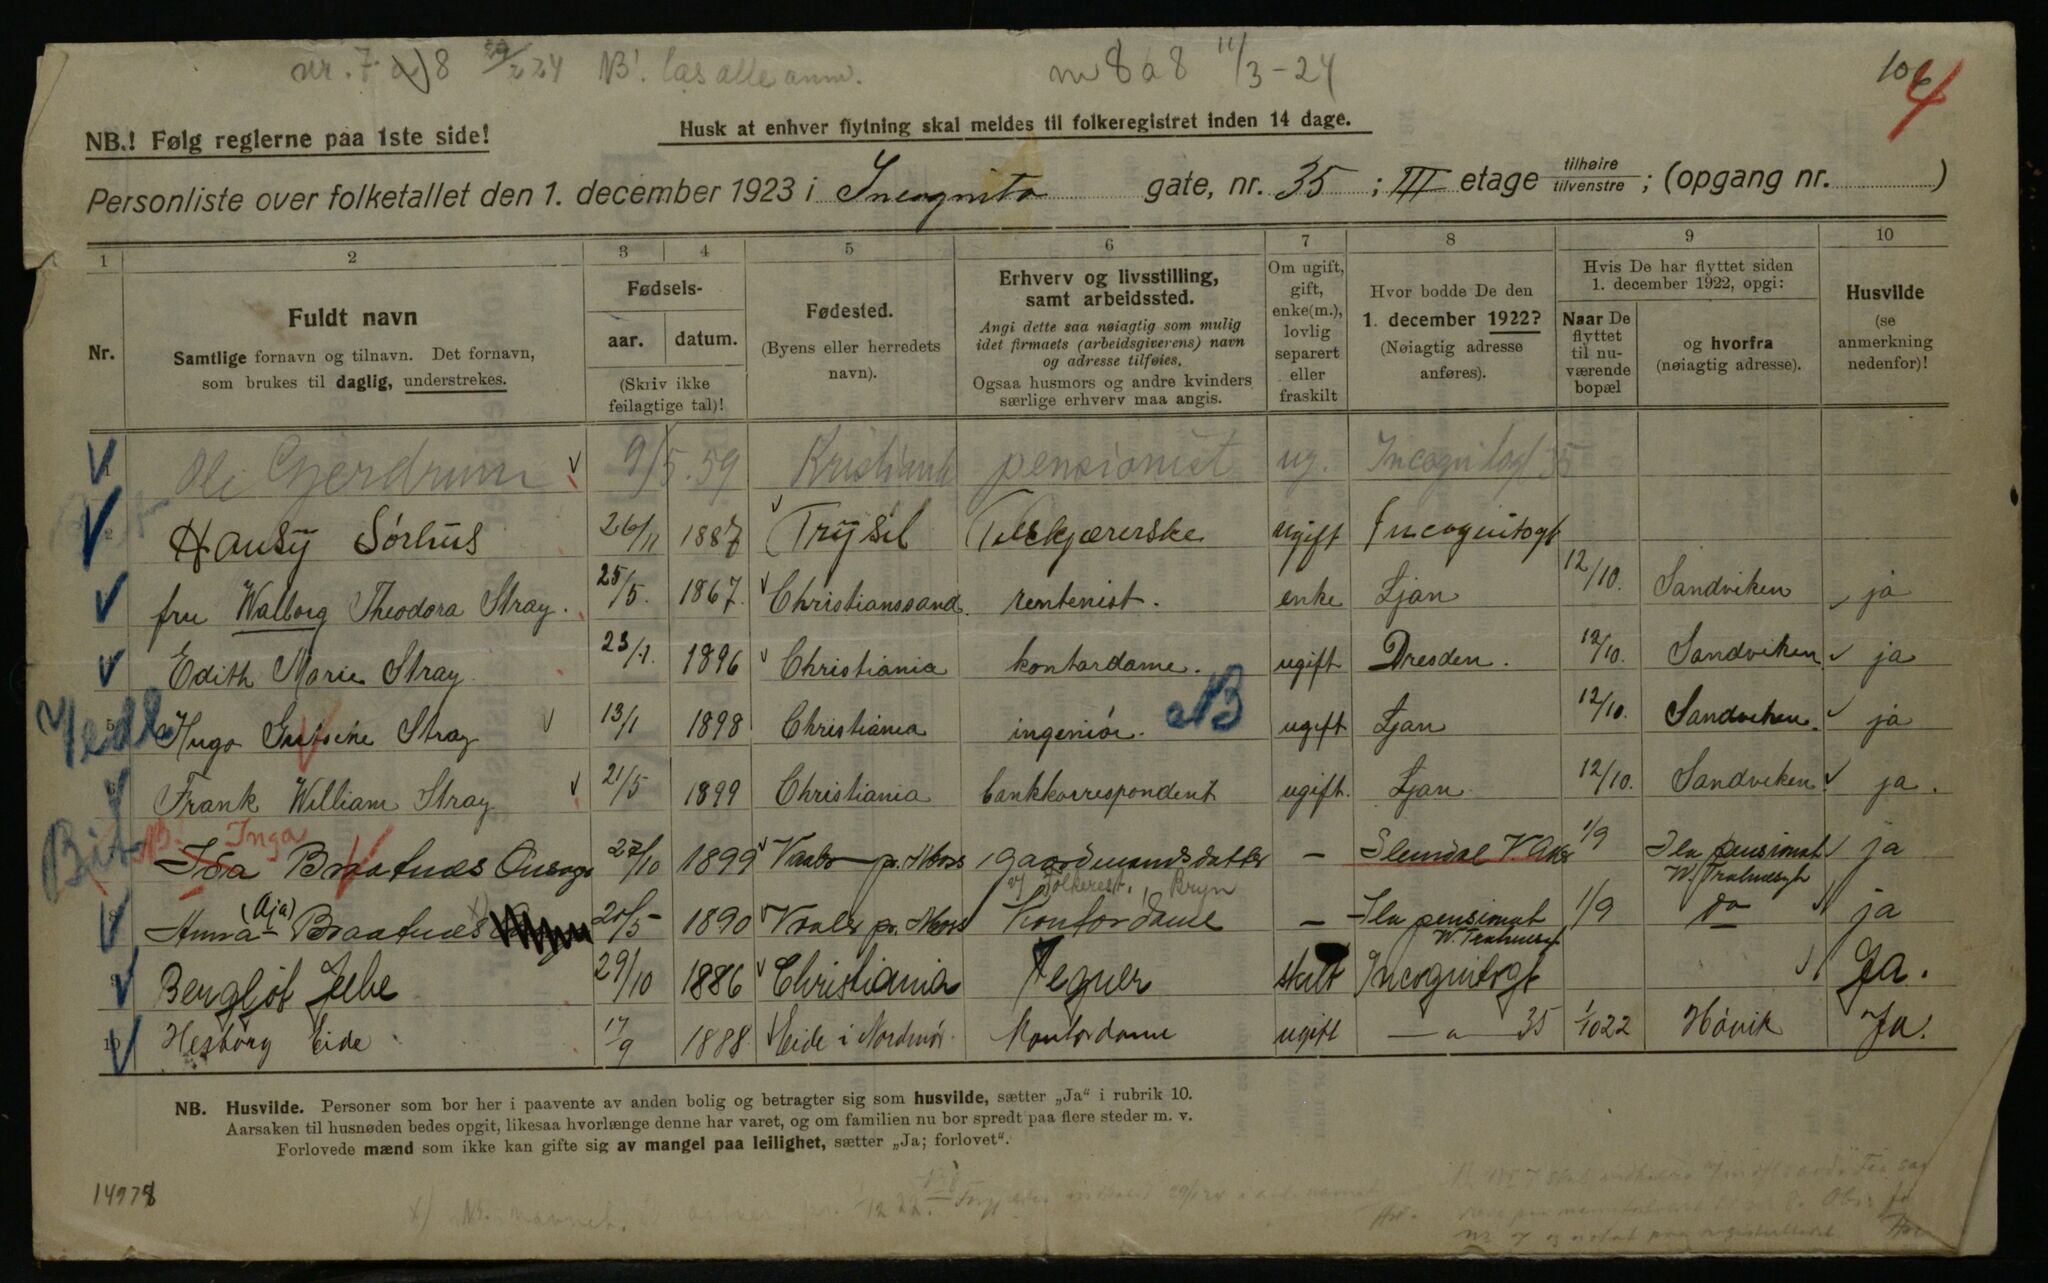 nr. 7 a 8 29/2 24 NB! læs alle anm.
nr 8 a 8 11/3-24
106
4
NB.! Følg reglerne paa 1ste side!
Husk at enhver flytning skal meldes til folkeregistret inden 14 dage.
Personliste over folketallet den 1. december 1923 i Incognito gate, nr. 35; III etage tilhøire tilvenstre; (opgang nr. )
1 2 3 4 5 6 7 8 9 10
Nr.
Fuldt navn
Samtlige fornavn og tilnavn. Det fornavn,
som brukes til daglig, understrekes.
Fødsels-
aar. datum.
(Skriv ikke
feilagtige tal)!
Fødested.
(Byens eller herredets
navn).
Erhverv og livsstilling,
samt arbeidssted.
Angi dette saa nøiagtig som mulig
idet firmaets (arbeidsgiverens) navn
og adresse tilføies.
Ogsaa husmors og andre kvinders
særlige erhverv maa angis.
Om ugift,
gift,
enke(m.),
lovlig
separert
eller
fraskilt
Hvor bodde De den
1. december 1922?
(Nøiagtig adresse
anføres).
Hvis De har flyttet siden
1. december 1922, opgi:
Naar De
flyttet
til nu-
værende
bopæl
og hvorfra
(nøiagtig adresse).
Husvilde
(se
anmerkning
nedenfor)!
1 Ole Gjerdrum 9/5. 59 Kristiania pensionist ug. Incognitogt 35
2 Hansy Sørhus 26/11 1887 Trysil Tilskjærerske ugift Incognitogt
fru Walborg Theodora Stray. 25/5. 1867. Christianssand. rentenist. enke Ljan 12/10. Sandviken ja
Edith Marie Stray 23/1. 1896 Christiania kontordame. ugift Dresden. 12/10. Sandviken ja
5 Hugo Stray 13/1 1898 Christiania ingeniør. NB ugift Ljan 12/10. Sandviken. ja
6 Frank William Stray 21/5 1899 Christiania bankkorrespondent ugift. Ljan 12/10. Sandviken ja.
NB. Inga
Ida Braatnes 27/10 1899 Vaaler pr. Moss gaardmandsdatter — Slemdal V. Aker 1/9 Ila pensionat ja
W. Tranesgt
v/ Folkerest. Bryn
8 Anna (Aja) Braatnes x) 20/5 1890 Vaaler pr. Moss Kontordame — Ila pensionat 1/9 do ja
W. Tranesgt
9 Bergljot Jebe 29/10 1886 Christiania Tegner skilt Incognitogt Ja.
10 Eide 17/9 1888. Eide i Nordmør. Kontordame ugift — " — 35 1/10 22 Høvik Ja.
NB. Husvilde. Personer som bor her i paavente av anden bolig og betragter sig som husvilde, sætter „Ja“ i rubrik 10.
Aarsaken til husnøden bedes opgit, likesaa hvorlænge denne har varet, og om familien nu bor spredt paa flere steder m. v.
Forlovede mænd som ikke kan gifte sig av mangel paa leilighet, sætter „Ja; forlovet“.
14978
x) NB. navnet.